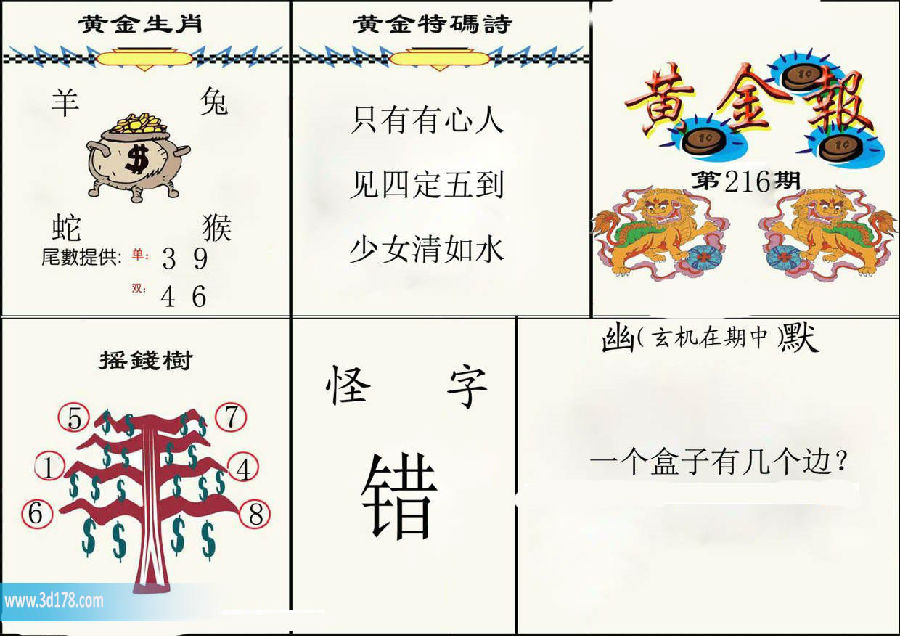 黄金生肖
羊 兔
$
蛇 猴
尾數提供: 单: 3 9
双: 4 6
黄金特碼詩
只有有心人
见四定五到
少女清如水
黄金報
第216期
摇錢樹
5 7
1 4
6 8
怪 字
错
幽(玄机在期中)默
一个盒子有几个边?
www.3d178.com